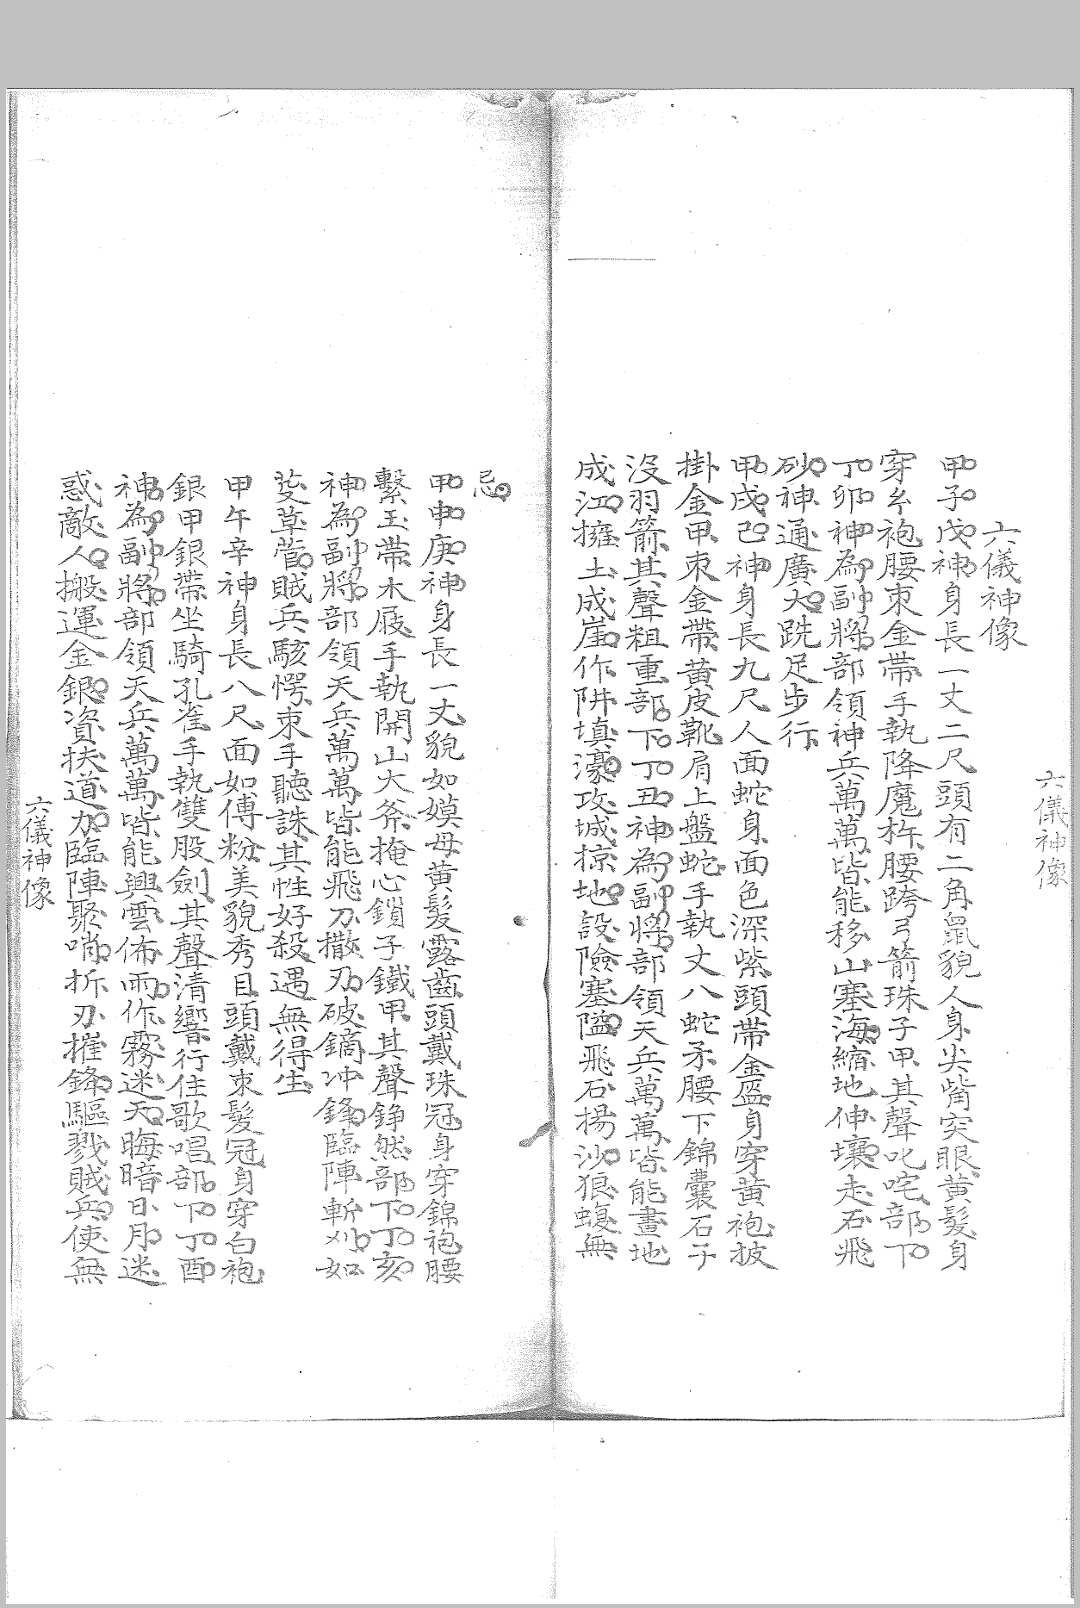 六儀神像
六儀神像
甲子戊神身長一丈二尺頭有二角鼠貌人身尖嘴突眼黃髮身
穿幺袍腰束金帶手執降魔杵腰跨弓箭珠子甲其聲叱咤部下
丁卯神為副將部領神兵萬萬皆能移山塞海縮地伸壤走石飛
砂神通廣大跣足步行
甲戌己神身長九尺人面蛇身面色深紫頭帶金盔身穿黃袍披
掛金甲束金帶黃皮靴肩上盤蛇手執丈八蛇矛腰下錦囊石子
沒羽箭其聲粗重部下丁丑神為副將部領天兵萬萬皆能畫地
成江擁土成崖作阱填濠攻城掠地設險塞隘飛石揚沙狼𧌒無
忌
甲申庚神身長一丈貌如嫫母黃髮露齒頭戴珠冠身穿錦袍腰
繫玉帶木屐手執開山大斧掩心鎖子鐵甲其聲錚然部下丁亥
神為副將部領天兵萬萬皆能飛刀撒刃破鏑冲鋒臨陣斬刈如
芟草菅賊兵駭愕束手聽誅其性好殺遇無得生
甲午辛神身長八尺面如傅粉美貌秀目頭戴束髮冠身穿白袍
銀甲銀帶坐騎孔雀手執雙股劍其聲清響行住歌唱部下丁酉
神為副將部領天兵萬萬皆能興雲佈雨作霧迷天晦暗日月迷
惑敵人搬運金銀資扶道力臨陣聚哨折刃摧鋒驅戮賊兵使無
六儀神像